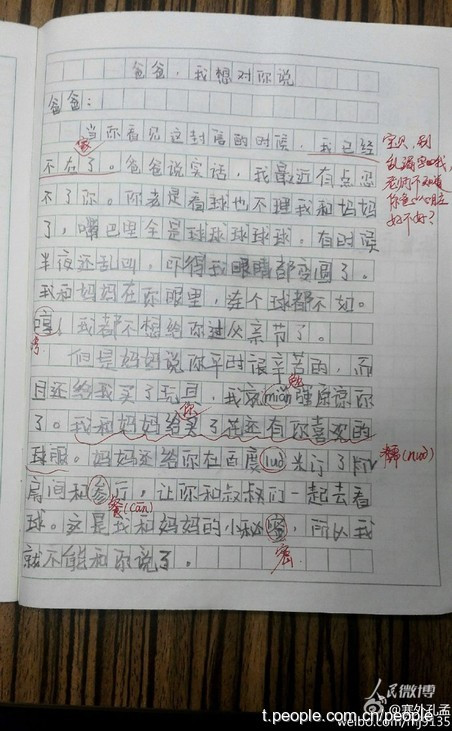 爸爸，我想对你说
爸爸：
当你看见这封信的时候，我已经
家
不在了。爸爸说实话，我最近有点忍
不了你。你老是看球也不理我和妈妈
了，嘴巴里全是球球球球球。有时候
半夜还乱叫，吓得我眼睛都变圆了。
我和妈妈在你眼里，连个球都不如。
我都不想给你过父亲节了。
但是妈妈说你平时很辛苦的，而
且还给我买了玩具，我就mian强原谅你
勉
了。我和妈妈给买了
你
还有你喜欢的
球服。妈妈还给你在百度nuo米订了
糯(nuo)
房间和参厅，让你和叔叔们一起去看
餐(can)
球。这是我和妈妈的小秘
，所以我
密
就不能和你说了。
宝贝，别
你
好不好？
人民微博
@塞外孔孟
t.people.com.cn/people
weibo.com/mj9135